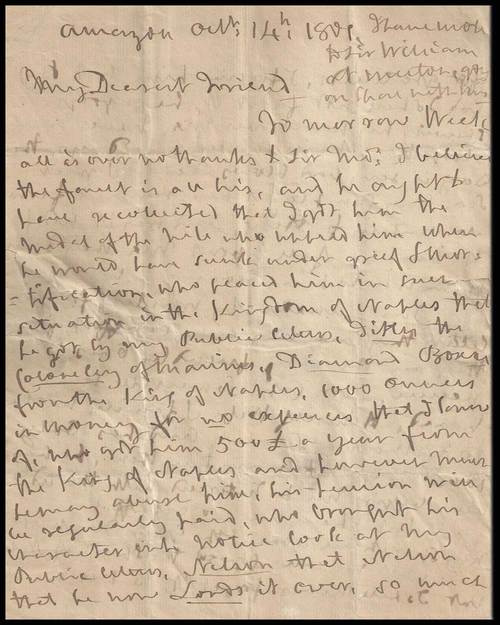 Amazon Octr: 14th: 1801,
I have wrote
to Sir William
at Merton,
My Dearest Friend
To morrow Week
all is over no thanks to Sir Ths: I believe
the fault is all his, and he ought to
have recollected that I got him the
medal of the Nile who upheld him when
he would have sunk under grief & mor=
=tification, who placed him in such
situation in the Kingdom of Naples that
he got by my Public letters, ditto the
Colonelcy of Marines, Diamond Boxes
from the King of Naples, 1000 ounces
in money for no expences that I know
of, who got him 500£ a year from
the King of Naples and however much
he may abuse him, his pension will
be regularly paid, who brought his
character into notice look at my
Public letters, Nelson that Nelson
that he now Lords it over, so much